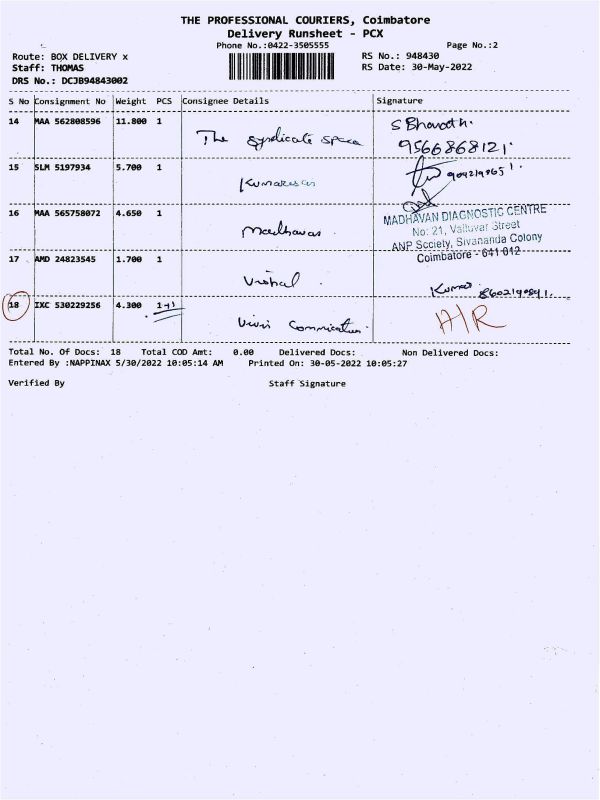 THE PROFESSIONAL COURIERS, Coimbatore
Delivery Runsheet - PCX
Phone No.:0422-3505555 Page No.:2
Route: BOX DELIVERY x RS No.: 948430
Staff: THOMAS RS Date: 30-May-2022
DRS No.: DCJB94843002
S No Consignment No Weight PCS Consignee Details Signature
14 MAA 562808596 11.800 1 The Syndicate space S Bharath.
9566868121.
15 SLM 5197934 5.700 1 Kumaresan
16 MAA 565758072 4.650 1 Madhavan. MADHAVAN DIAGNOSTIC CENTRE
No: 21, Valluvar Street
ANP Society, Sivananda Colony
Coimbatore - 641 012
17 AMD 24823545 1.700 1 Vishal. Kumar. 8602190891.
18 IXC 530229256 4.300 1+1 H/R
Total No. Of Docs: 18 Total COD Amt: 0.00 Delivered Docs: Non Delivered Docs:
Entered By :NAPPINAX 5/30/2022 10:05:14 AM Printed On: 30-05-2022 10:05:27
Verified By Staff Signature